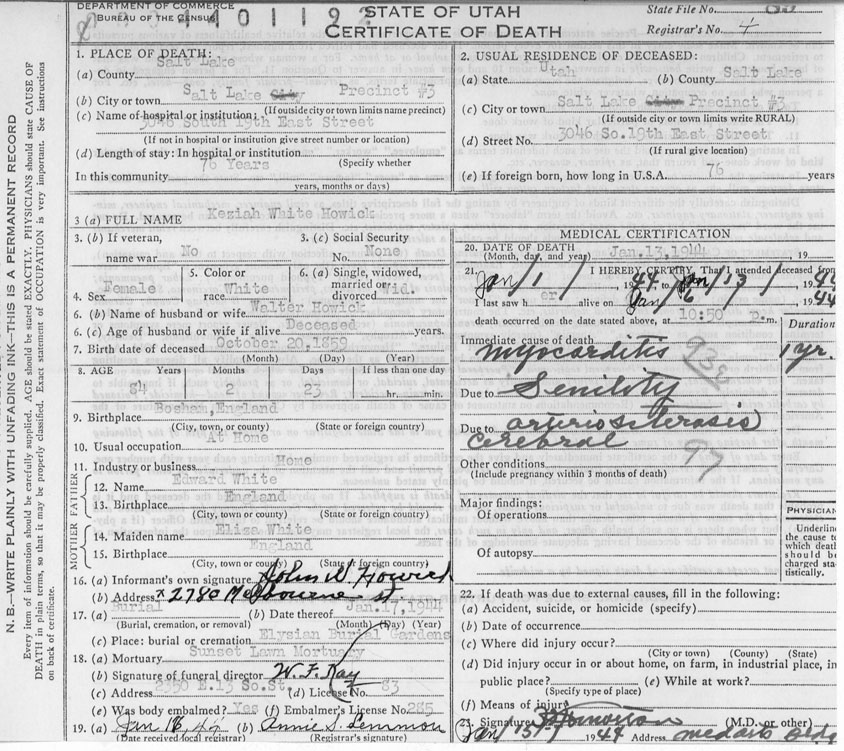 DEPARTMENT OF COMMERCE
BUREAU OF THE CENSUS
4401192
STATE OF UTAH
CERTIFICATE OF DEATH
State File No.
Registrar's No. 4
N. B.—WRITE PLAINLY WITH UNFADING INK—THIS IS A PERMANENT RECORD
Every item of information should be carefully supplied. AGE should be stated EXACTLY. PHYSICIANS should state CAUSE OF
DEATH in plain terms, so that it may be properly classified. Exact statement of OCCUPATION is very important. See instructions
on back of certificate.
1. PLACE OF DEATH:
(a) County Salt Lake
(b) City or town Salt Lake City Precinct #3
(If outside city or town limits name precinct)
(c) Name of hospital or institution:
3046 South 19th East Street
(If not in hospital or institution give street number or location)
(d) Length of stay: In hospital or institution
(Specify whether
In this community 76 Years
years, months or days)
2. USUAL RESIDENCE OF DECEASED:
(a) State Utah (b) County Salt Lake
(c) City or town Salt Lake City Precinct #3
(If outside city or town limits write RURAL)
(d) Street No. 3046 So.19th East Street
(If rural give location)
(e) If foreign born, how long in U.S.A. 76 years
3 (a) FULL NAME Keziah White Howick
3. (b) If veteran,
name war No
3. (c) Social Security
No. None
4. Sex Female
5. Color or
race White
6. (a) Single, widowed,
married or
divorced Wid.
6. (b) Name of husband or wife Walter Howick
6. (c) Age of husband or wife if alive Deceased years.
7. Birth date of deceased October 20,1859
(Month) (Day) (Year)
8. AGE Years Months Days If less than one day
84 2 23 hr. min.
9. Birthplace Bosham,England
(City, town, or county) (State or foreign country)
10. Usual occupation At Home
11. Industry or business Home
FATHER
12. Name Edward White
13. Birthplace England
(City, town or county) (State or foreign country)
MOTHER
14. Maiden name Eliza White
15. Birthplace England
(City, town or county) (State or foreign country)
16. (a) Informant's own signature John W Howick
(b) Address x 2780 Melbourne st.
17. (a) Burial (b) Date thereof Jan.17,1944
(Burial, cremation, or removal) (Month) (Day) (Year)
(c) Place: burial or cremation Elysian Burial Gardens
18. (a) Mortuary Sunset Lawn Mortuary
(b) Signature of funeral director W. F. Ray
(c) Address 2350 E.13 So.St. (d) License No. 83
(e) Was body embalmed? Yes (f) Embalmer's License No. 285
19. (a) Jan 18, 44 (b) Annie S. Lemmon
(Date received local registrar) (Registrar's signature)
MEDICAL CERTIFICATION
20. DATE OF DEATH
(Month, day, and year) Jan.13,1944 , 19
21. I HEREBY CERTIFY, That I attended deceased from
Jan / 1 / 1944 to Jan / 13 / 1944
I last saw h er alive on Jan / 6 / 1944
death occurred on the date stated above, at 10:50 p.m.
Duration
Immediate cause of death
myocarditis 93c 1 yr.
Due to Senility
Due to arteriosclerosis
cerebral 97
Other conditions
(Include pregnancy within 3 months of death)
Major findings:
Of operations
Of autopsy
PHYSICIAN
Underline
the cause to
which death
should be
charged sta-
tistically.
22. If death was due to external causes, fill in the following:
(a) Accident, suicide, or homicide (specify)
(b) Date of occurrence
(c) Where did injury occur?
(City or town) (County) (State)
(d) Did injury occur in or about home, on farm, in industrial place, in
public place? (e) While at work?
(Specify type of place)
(f) Means of injury
23. Signature (M.D. or other)
Jan / 15 / 1944 Address med arts Bldg